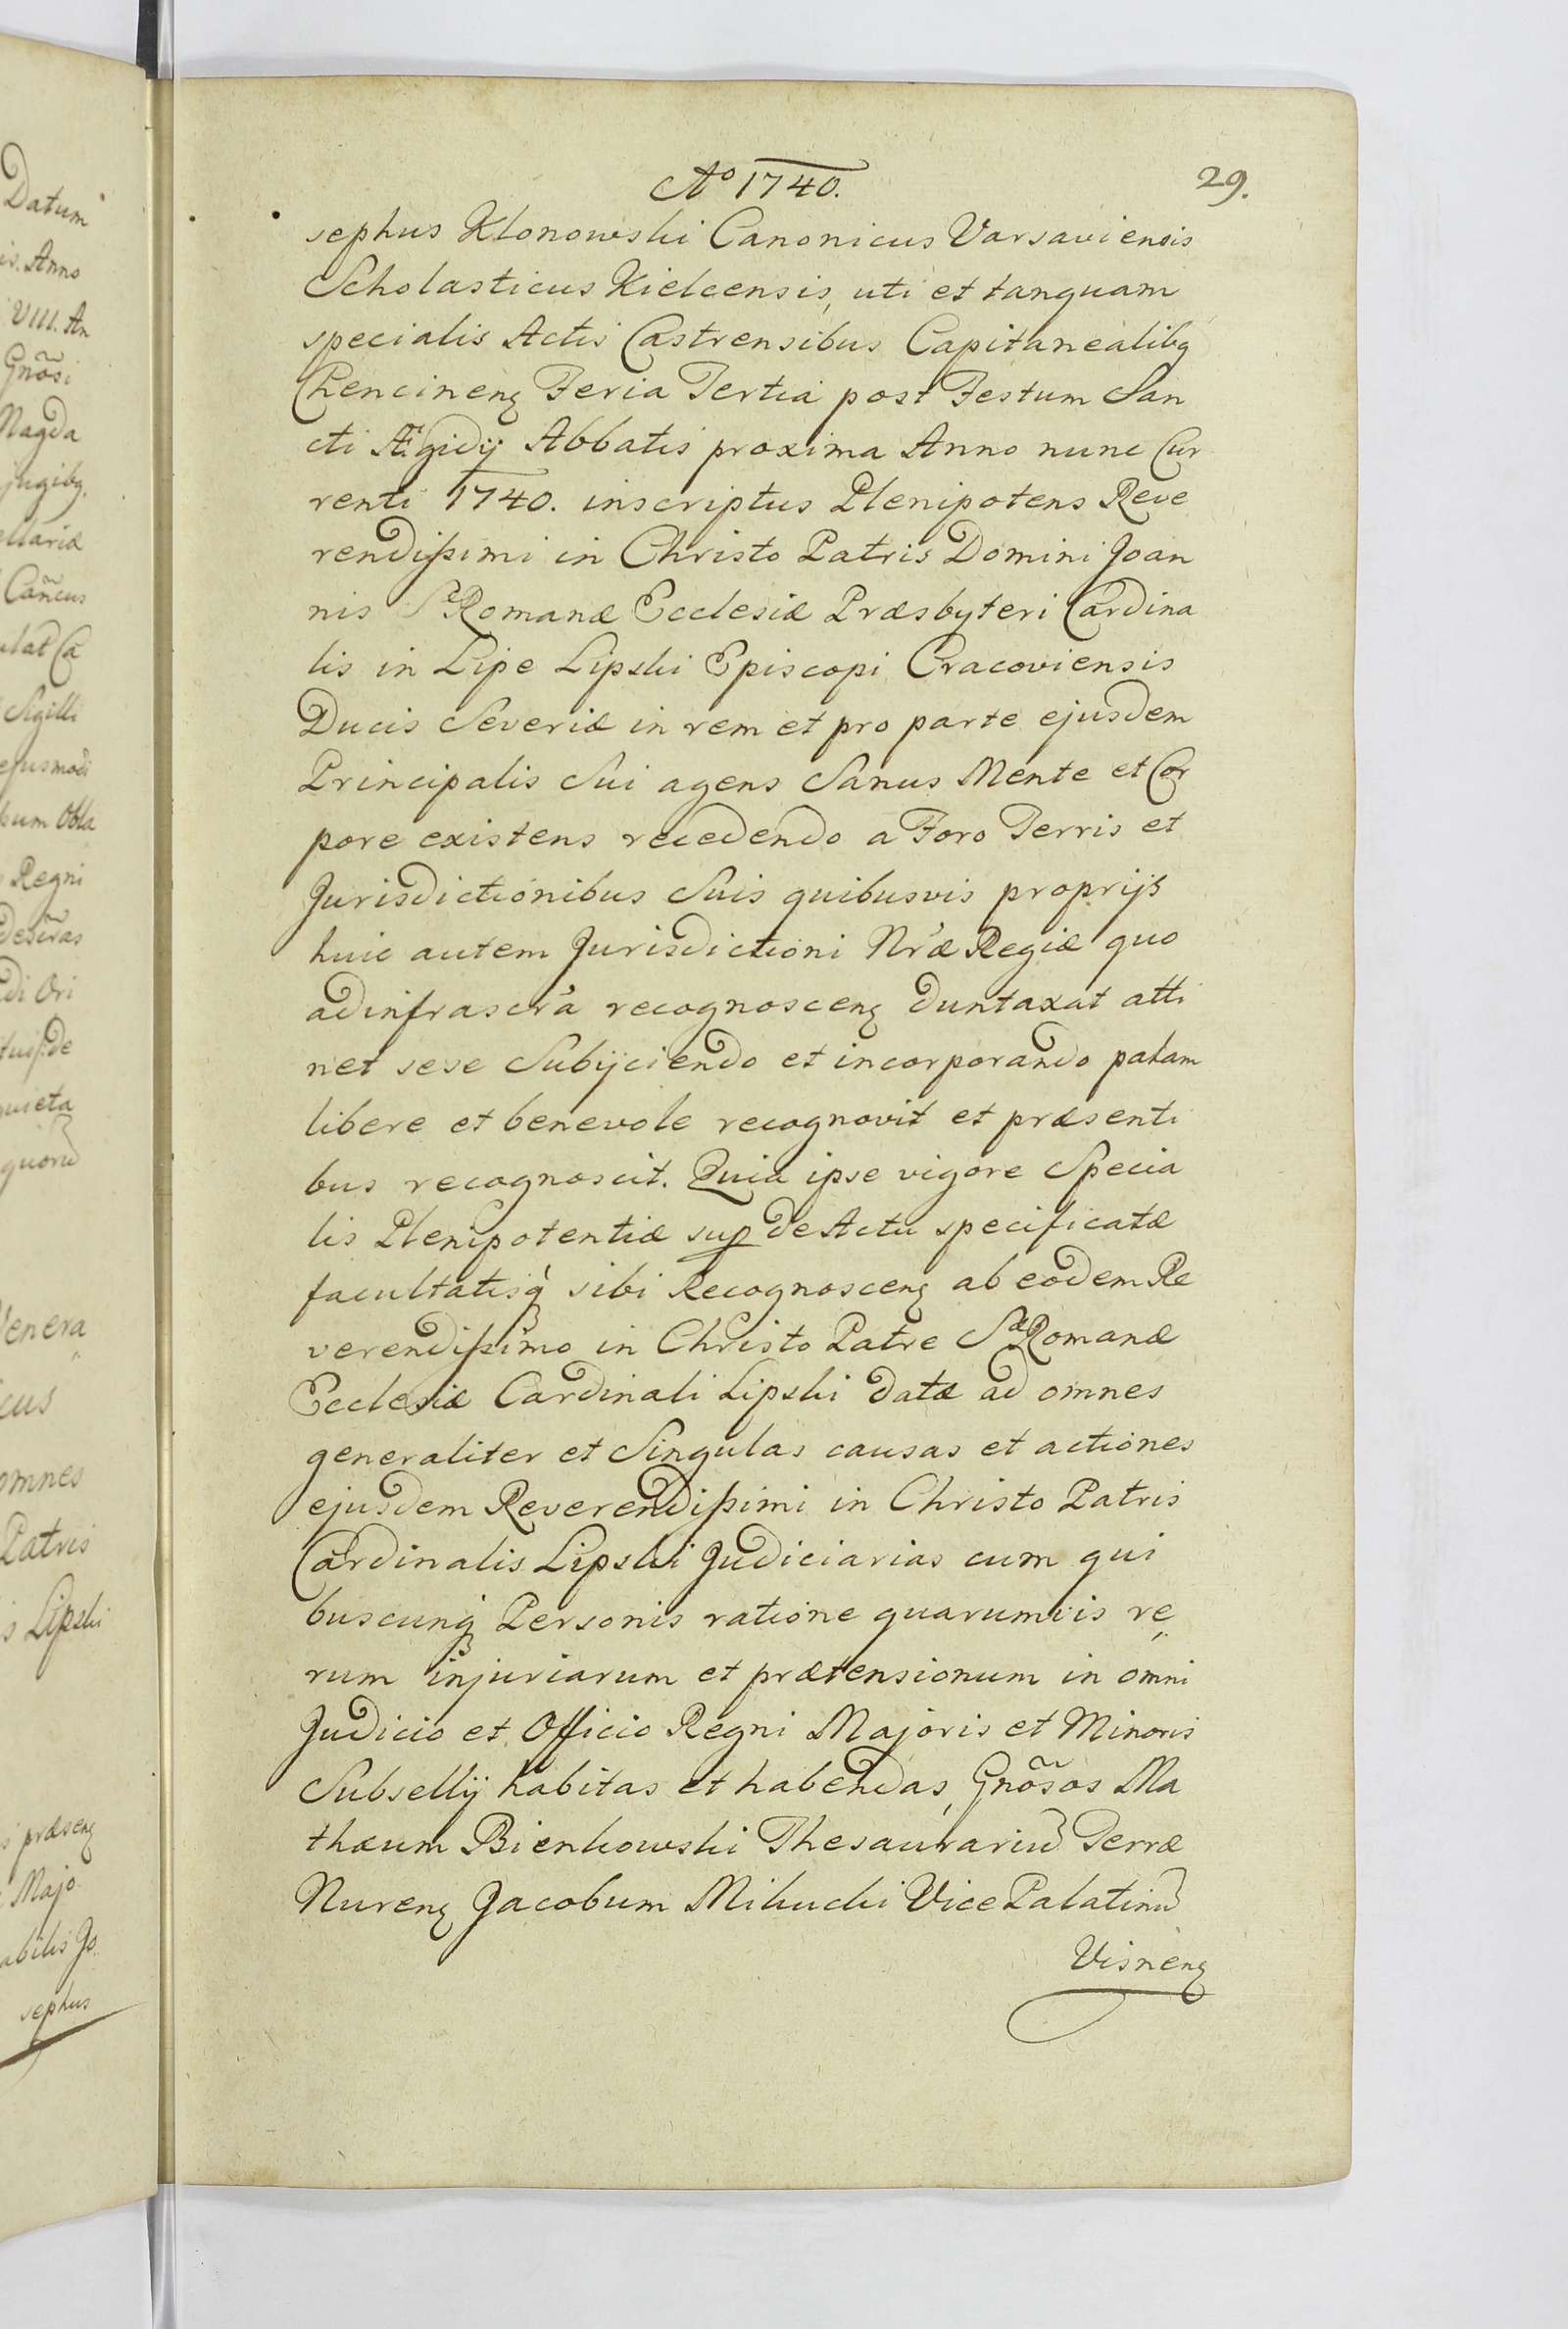 Datum
is. Anno
VIII. An
Gnõsi
Magda
jugibq,
ellariæ
Cañcus
ulat Ca
Sigilli
ejusmodi
sum Obla
Regni
descras
di Ori
quieta
quorũ
Venera
icus
omnes
Patris
s Lipski
s præsenq
Majo
abilis Jo,,
sephus
Aº 1740. 29.
sephus Klonowski Canonicus Varsaviensis
Scholasticus Kielcensis, uti et tanquam
specialis Actis Castrensibus Capitanealibq
Chencinenq Feria Tertia post Festum San
cti Ægidij Abbatis proxima Anno nunc Cur
renti 1740. inscriptus Plenipotens Reve
rendißimi in Christo Patris Domini Joan
nis Sæ Romanæ Ecclesiæ Præsbyteri Cardina
lis in Lipe Lipski Episcopi Cracoviensis
Ducis Severiæ in rem et pro parte ejusdem
Principalis Sui agens Sanus Mente et Cor
pore existens recedendo a Foro Terris et
Jurisdictionibus Suis quibusvis proprijs
huic autem Jurisdictioni Nr̃æ Regiæ quo
adinfrascr̃a recognoscenq duntaxat atti
net sese Subijciendo et incorporando palam
libere et benevole recognovit et præsenti
bus recognoscit. Quia ipse vigore Specia
lis Plenipotentiæ sup de Actu specificatæ
facultatisq́ sibi Recognoscenq ab eodem Re
verendißimo in Christo Patre Sæ Romanæ
Ecclesiæ Cardinali Lipski datæ ad omnes
generaliter et Singulas causas et actiones
ejusdem Reverendißimi in Christo Patris
Cardinalis Lipski Judiciarias cum qui
buscunq́ Personis ratione quarumvis re,,
rum injuriarum et prætensionum in omni
Judicio et Officio Regni Majoris et Minoris
Subsellij habitas et habendas, Gnõsos Ma
thæum Bienkowski Thesaurariũ Terræ
Nurenq Jacobum Mikucki Vice Palatinũ
Visnenq